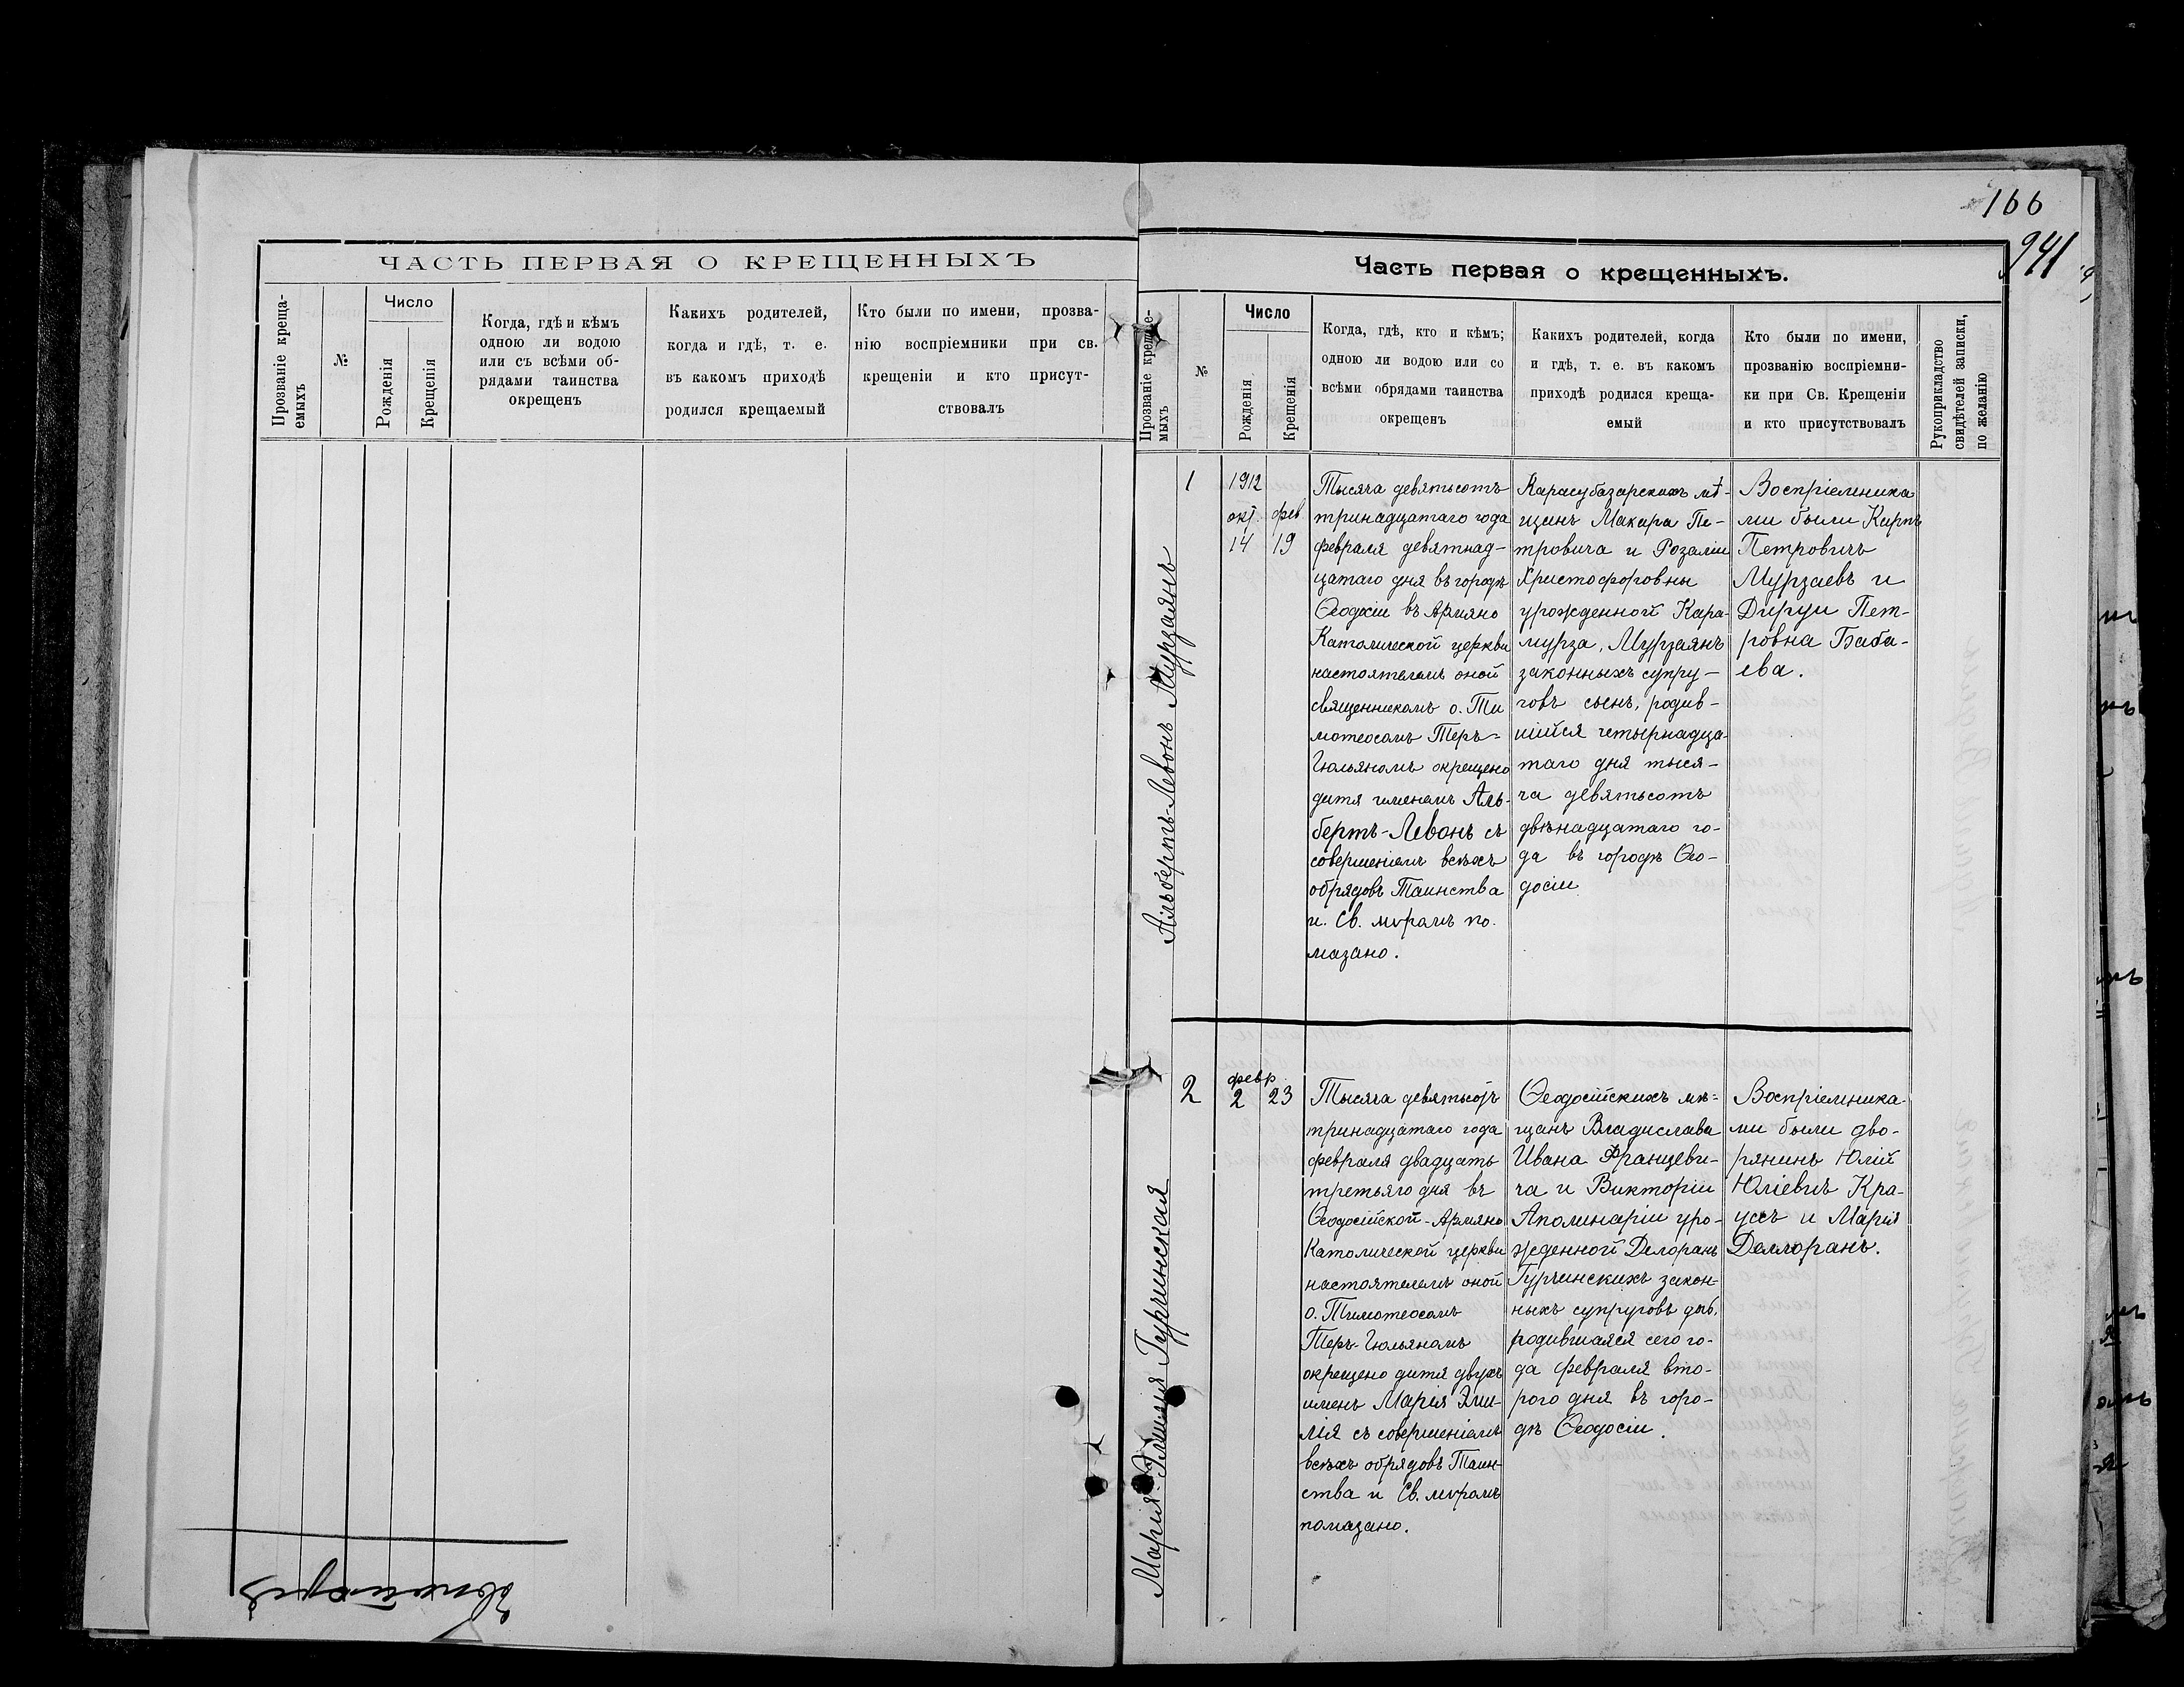 166
941
ЧАСТЬ ПЕРВАЯ О КРЕЩЕННЫХЪ
Прозваніе креща-
емыхъ
№
Число
Рожденія
Крещенія
Когда, гдѣ и кѣмъ
одною ли водою
или съ всѣми об-
рядами таинства
окрещенъ
Какихъ родителей,
когда и гдѣ, т. е.
въ какомъ приходѣ
родился крещаемый
Кто были по имени, прозва-
нію воспріемники при св.
крещеніи и кто присут-
ствовалъ
Часть первая о крещенныхъ.
Прозваніе крещае-
мыхъ
№
Число
Рожденія
Крещенія
Когда, гдѣ, кто и кѣмъ;
одною ли водою или со
всѣми обрядами таинства
окрещенъ
Какихъ родителей, когда
и гдѣ, т. е. въ какомъ
приходѣ родился креща-
емый
Кто были по имени,
прозванію воспріемни-
ки при Св. Крещеніи
и кто присутствовалъ
Рукоприкладство
свидѣтелей записки,
по желанію
Альбертъ-Левонъ Мурзаянъ
1
1912
окт.
14
фев.
19
Тысяча девятьсотъ
тринадцатаго года
февраля девятнад-
цатаго дня въ городѣ
Ѳеодосіи въ Армяно
Католической церкви
настоятелемъ оной
священникомъ о. Ти
мотеосомъ Теръ-
Гюльяномъ окрещено
дитя именемъ Аль-
бертъ-Левонъ съ
совершеніемъ всѣхъ
обрядовъ Таинства
и Св. мѵромъ по-
мазано.
Карасубазарскихъ мѣ-
щанъ Макара Пе-
тровича и Розаліи
Христофоровны
урожденной Кара-
мурза, Мурзаянъ
законныхъ супру-
говъ сынъ, родив-
шийся четырнадца-
таго дня тыся-
ча девятьсотъ
двѣнадцатаго го-
да въ городѣ Ѳео-
досіи
Воспріемника
ми были Карпъ
Петровичъ
Мурзаевъ и
Дируи Пет-
ровна Баба-
ева.
Марія-Эмилія Гурчинская
2
февр.
2
23
Тысяча девятьсотъ
тринадцатаго года
февраля двадцать
третьяго дня въ
Ѳеодосійской-Армяно
Католической церкви
настоятелемъ оной
о. Тимотеосомъ
Теръ-Гюльяномъ
окрещено дитя двухъ
именъ Марія Эми-
лія съ совершеніемъ
всѣхъ обрядовъ Таин-
ства и Св. мѵромъ
помазано.
Ѳеодосійскихъ мѣ-
щанъ Владислава
Ивана Францеви-
ча и Викторіи
Аполинаріи уро-
жденной Делоранъ
Гурчинскихъ закон-
ныхъ супруговъ доч.
родившаяся сего го-
да февраля вто-
рого дня въ горо-
дѣ Ѳеодосіи.
Воспріемника-
ми были дво-
рянинъ Юлій
Юліевичъ Кра-
уссъ и Марія
Деллоранъ.